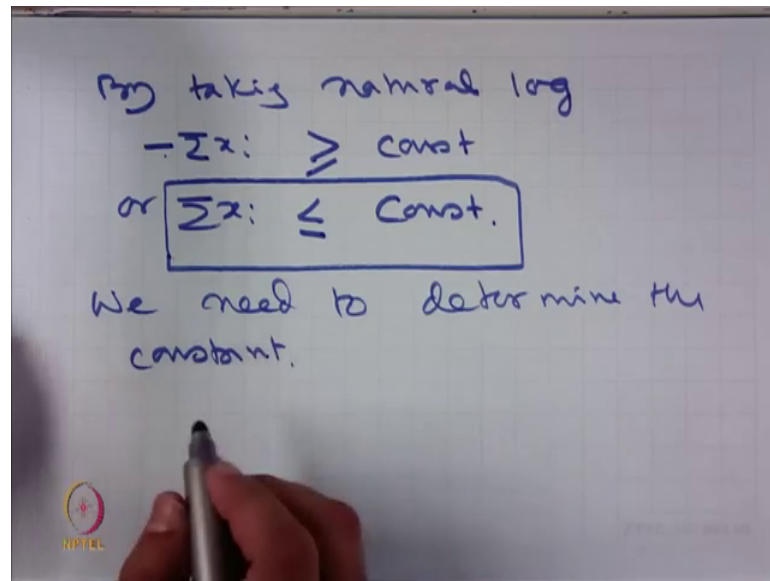 By taking natural log
-Σxi ≥ const
or Σxi ≤ Const.
We need to determine the
constant.
NPTEL